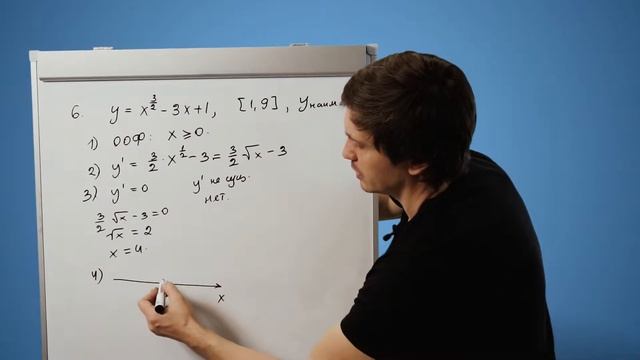 6. y = x^{3/2} - 3x + 1, [1, 9], y наим
1) ООФ: x ≥ 0.
2) y' = 3/2 · x^{1/2} - 3 = 3/2 √x - 3
3) y' = 0 y' не сущ.
нет.
3/2 √x - 3 = 0
√x = 2
x = 4.
4)
x